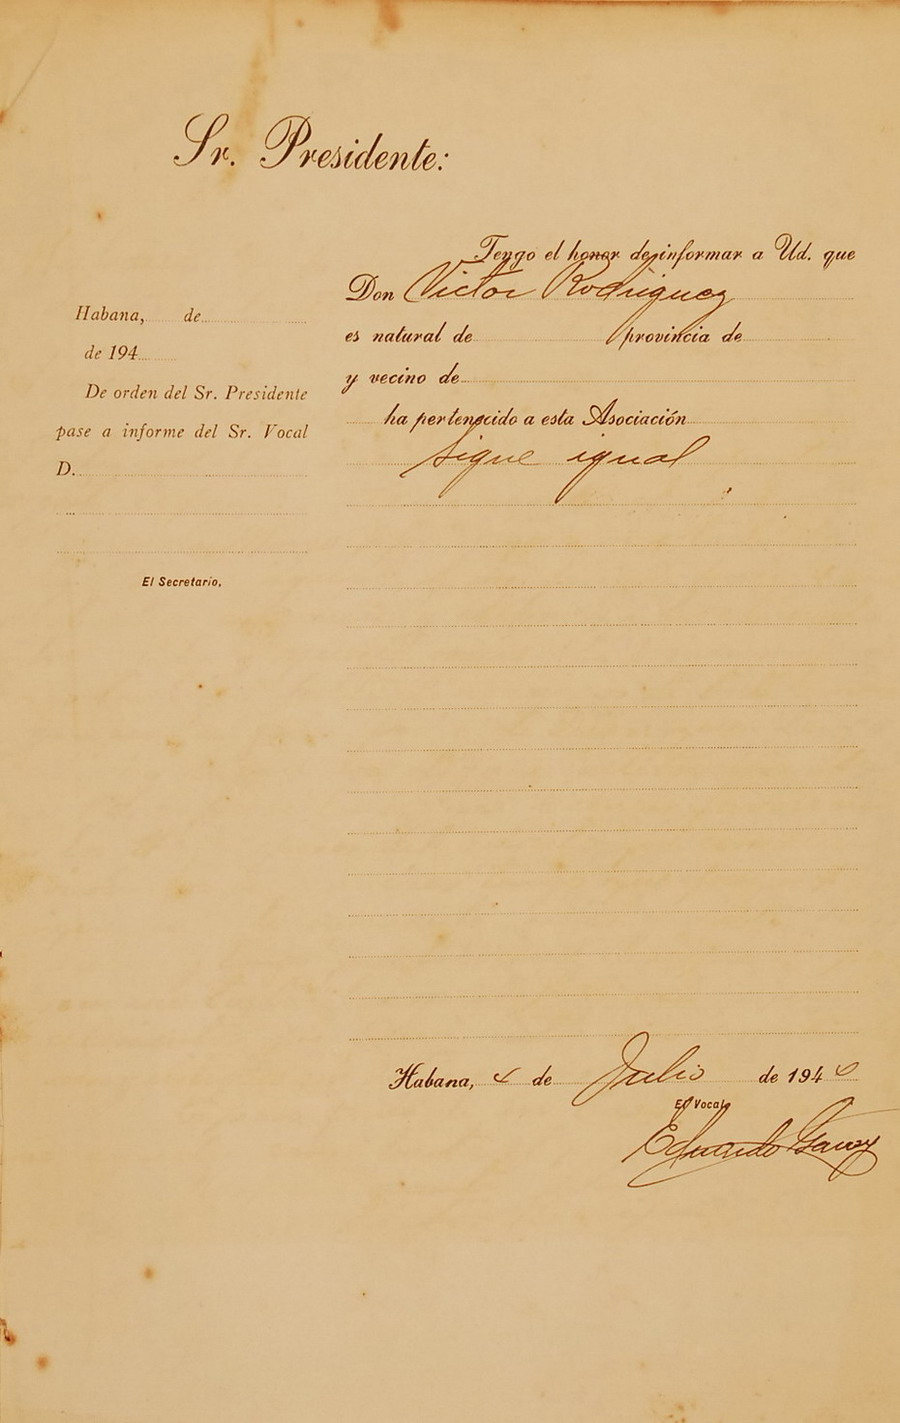 Sr. Presidente:
Habana, de
de 194
De orden del Sr. Presidente
pase a informe del Sr. Vocal
D.
El Secretario,
Tengo el honor de informar a Ud. que
Don Victor Rodriguez
es natural de provincia de
y vecino de
ha pertenecido a esta Asociación
Sigue igual
Habana, de Julio de 194
El Vocal,
Eduardo